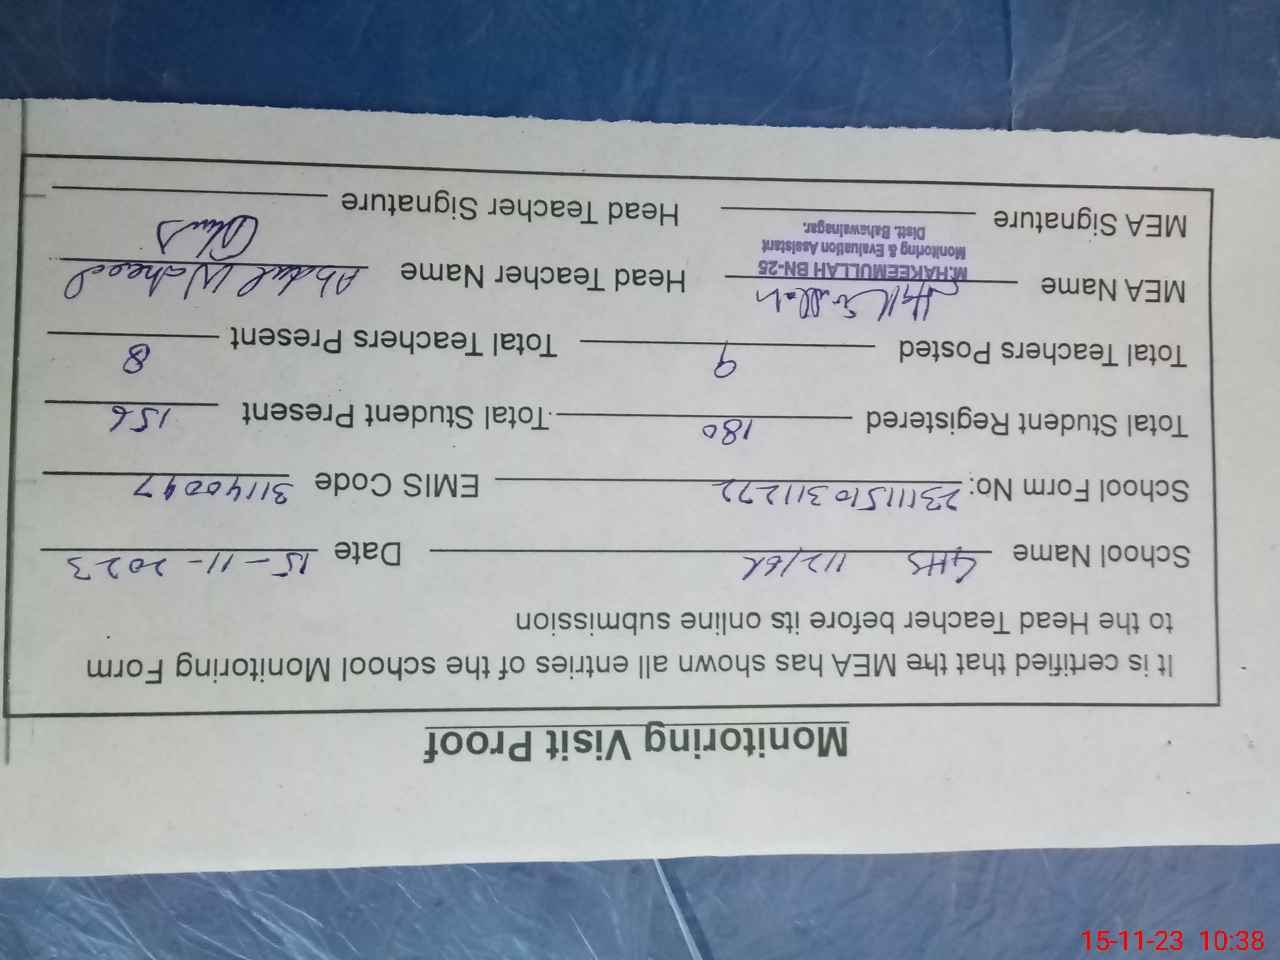 Monitoring Visit Proof
It is certified that the MEA has shown all entries of the school Monitoring Form
to the Head Teacher before its online submission
School Name GHS 112/6R Date 15-11-2023
School Form No: 231115103111272 EMIS Code 31140047
Total Student Registered 180 Total Student Present 156
Total Teachers Posted 9 Total Teachers Present 8
MEA Name Head Teacher Name Abdul Waheed
M.HAKEEMULLAH BN-25
Monitoring & Evaluation Assistant
Distt. Bahawalnagar.
MEA Signature Head Teacher Signature
15-11-23 10:38